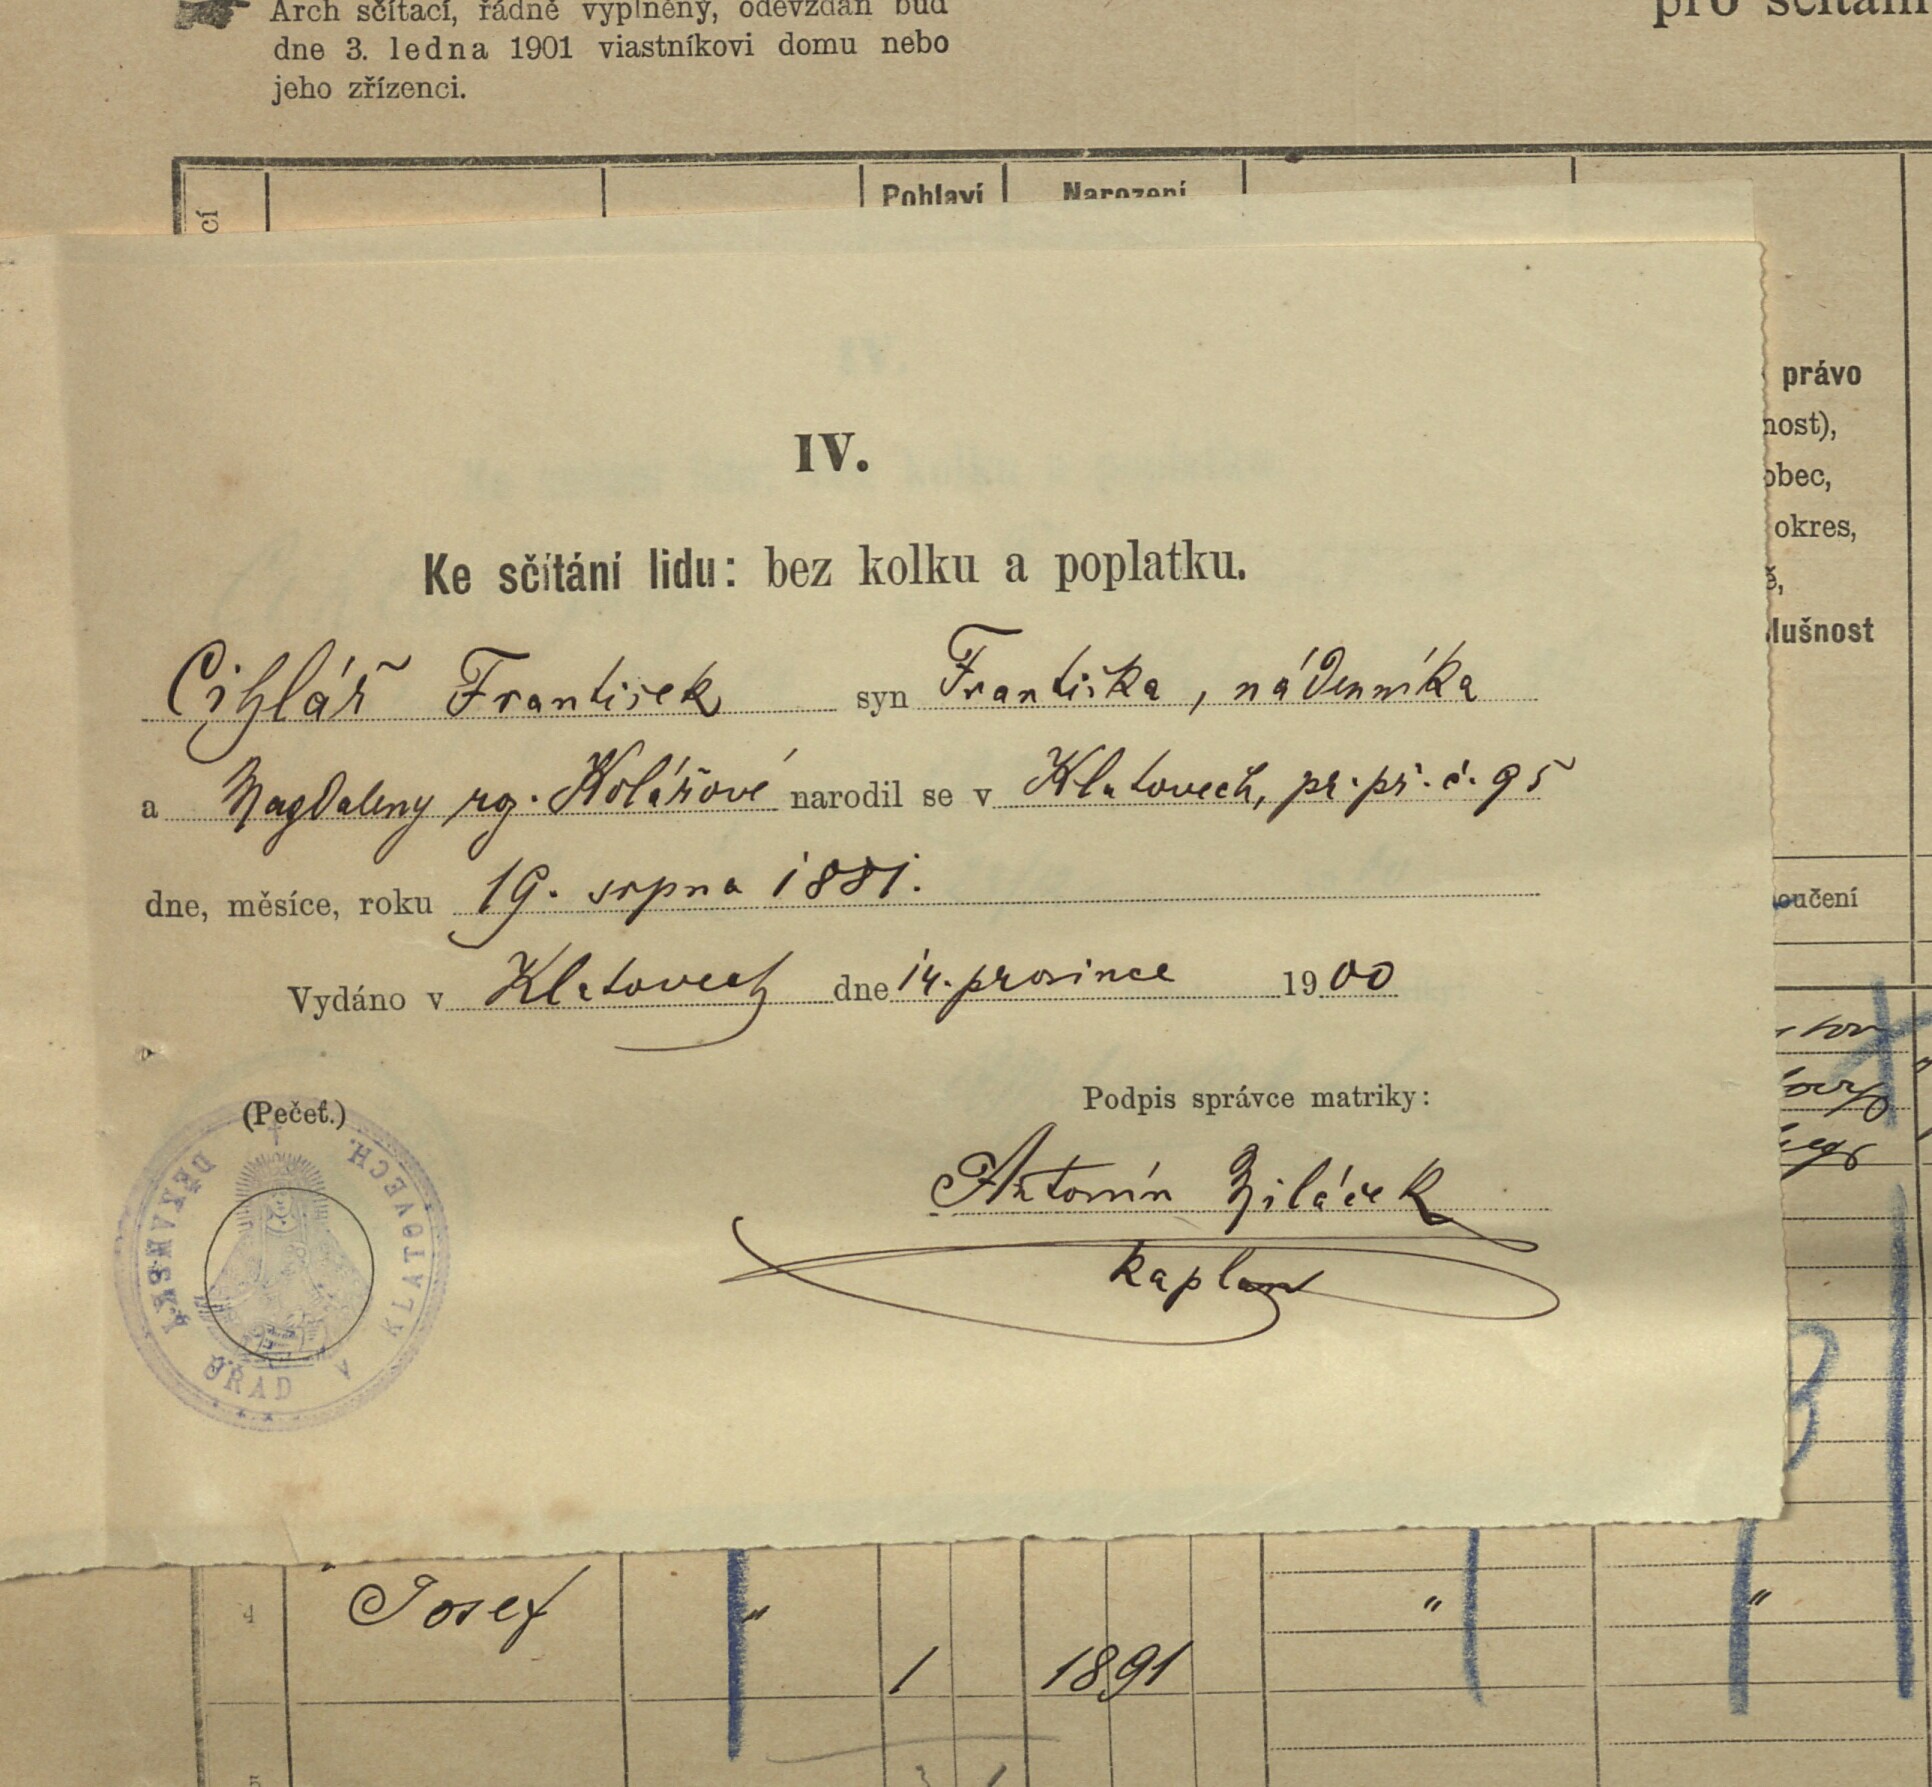 Arch sčítací, řádně vyplněný, odevzdán buď
dne 3. ledna 1901 viastníkovi domu nebo
jeho zřízenci.
pro sčítání
cí
Pohlaví
Narození
právo
nost),
obec,
okres,
lušnost
oučení
IV.
Ke sčítání lidu: bez kolku a poplatku.
Cihlář František syn Františka, nádenníka
a Magdaleny roz. Kolářové narodil se v Klatovech, pr. př. č. 95
dne, měsíce, roku 19. srpna 1881.
Vydáno v Klatovech dne 14. prosince 1900
(Pečeť.)
DĚKANSKÝ ÚŘAD V KLATOVECH.
Podpis správce matriky:
Antonín
kaplan
4 Josef " " "
1 1891